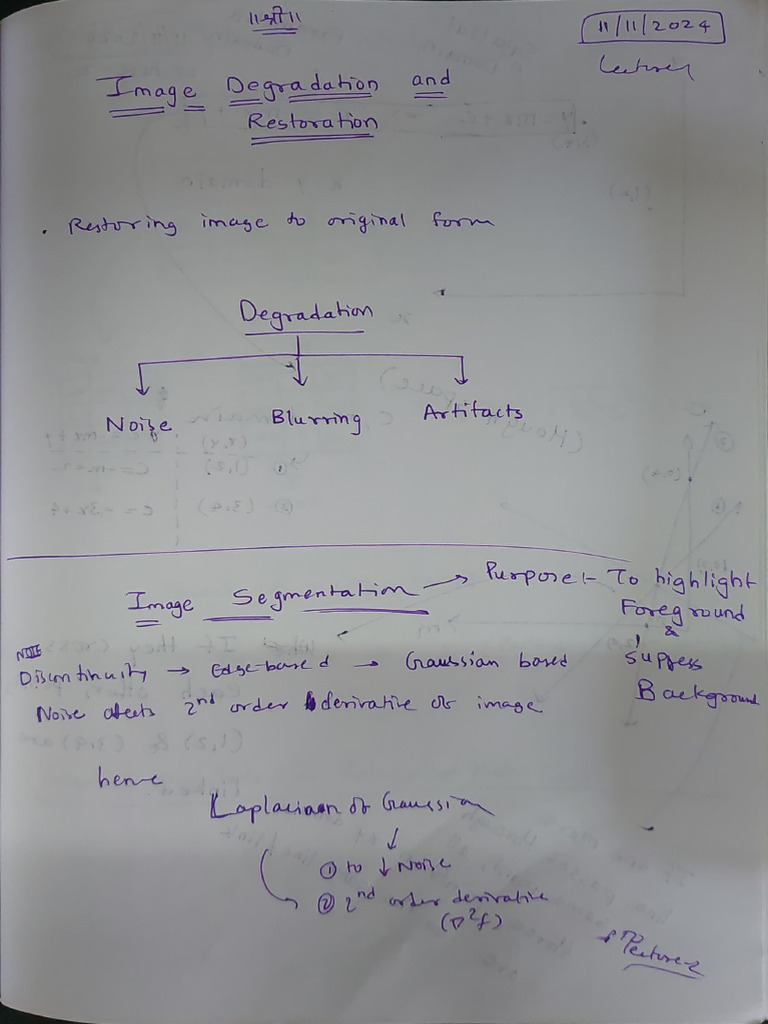 ॥श्री॥
11/11/2024
Lecture 1
Image Degradation and
Restoration
. Restoring image to original form
Degradation
Noise Blurring Artifacts
Image Segmentation → Purpose :- To highlight
Foreground
&
Suppress
Background
Discontinuity → Edge-based → Gaussian based
Noise afects 2nd order derivative of image
hence
Laplacian of Gaussian
↓
① to ↓ Noise
② 2nd order derivative
(∇²f)
Lecture-2